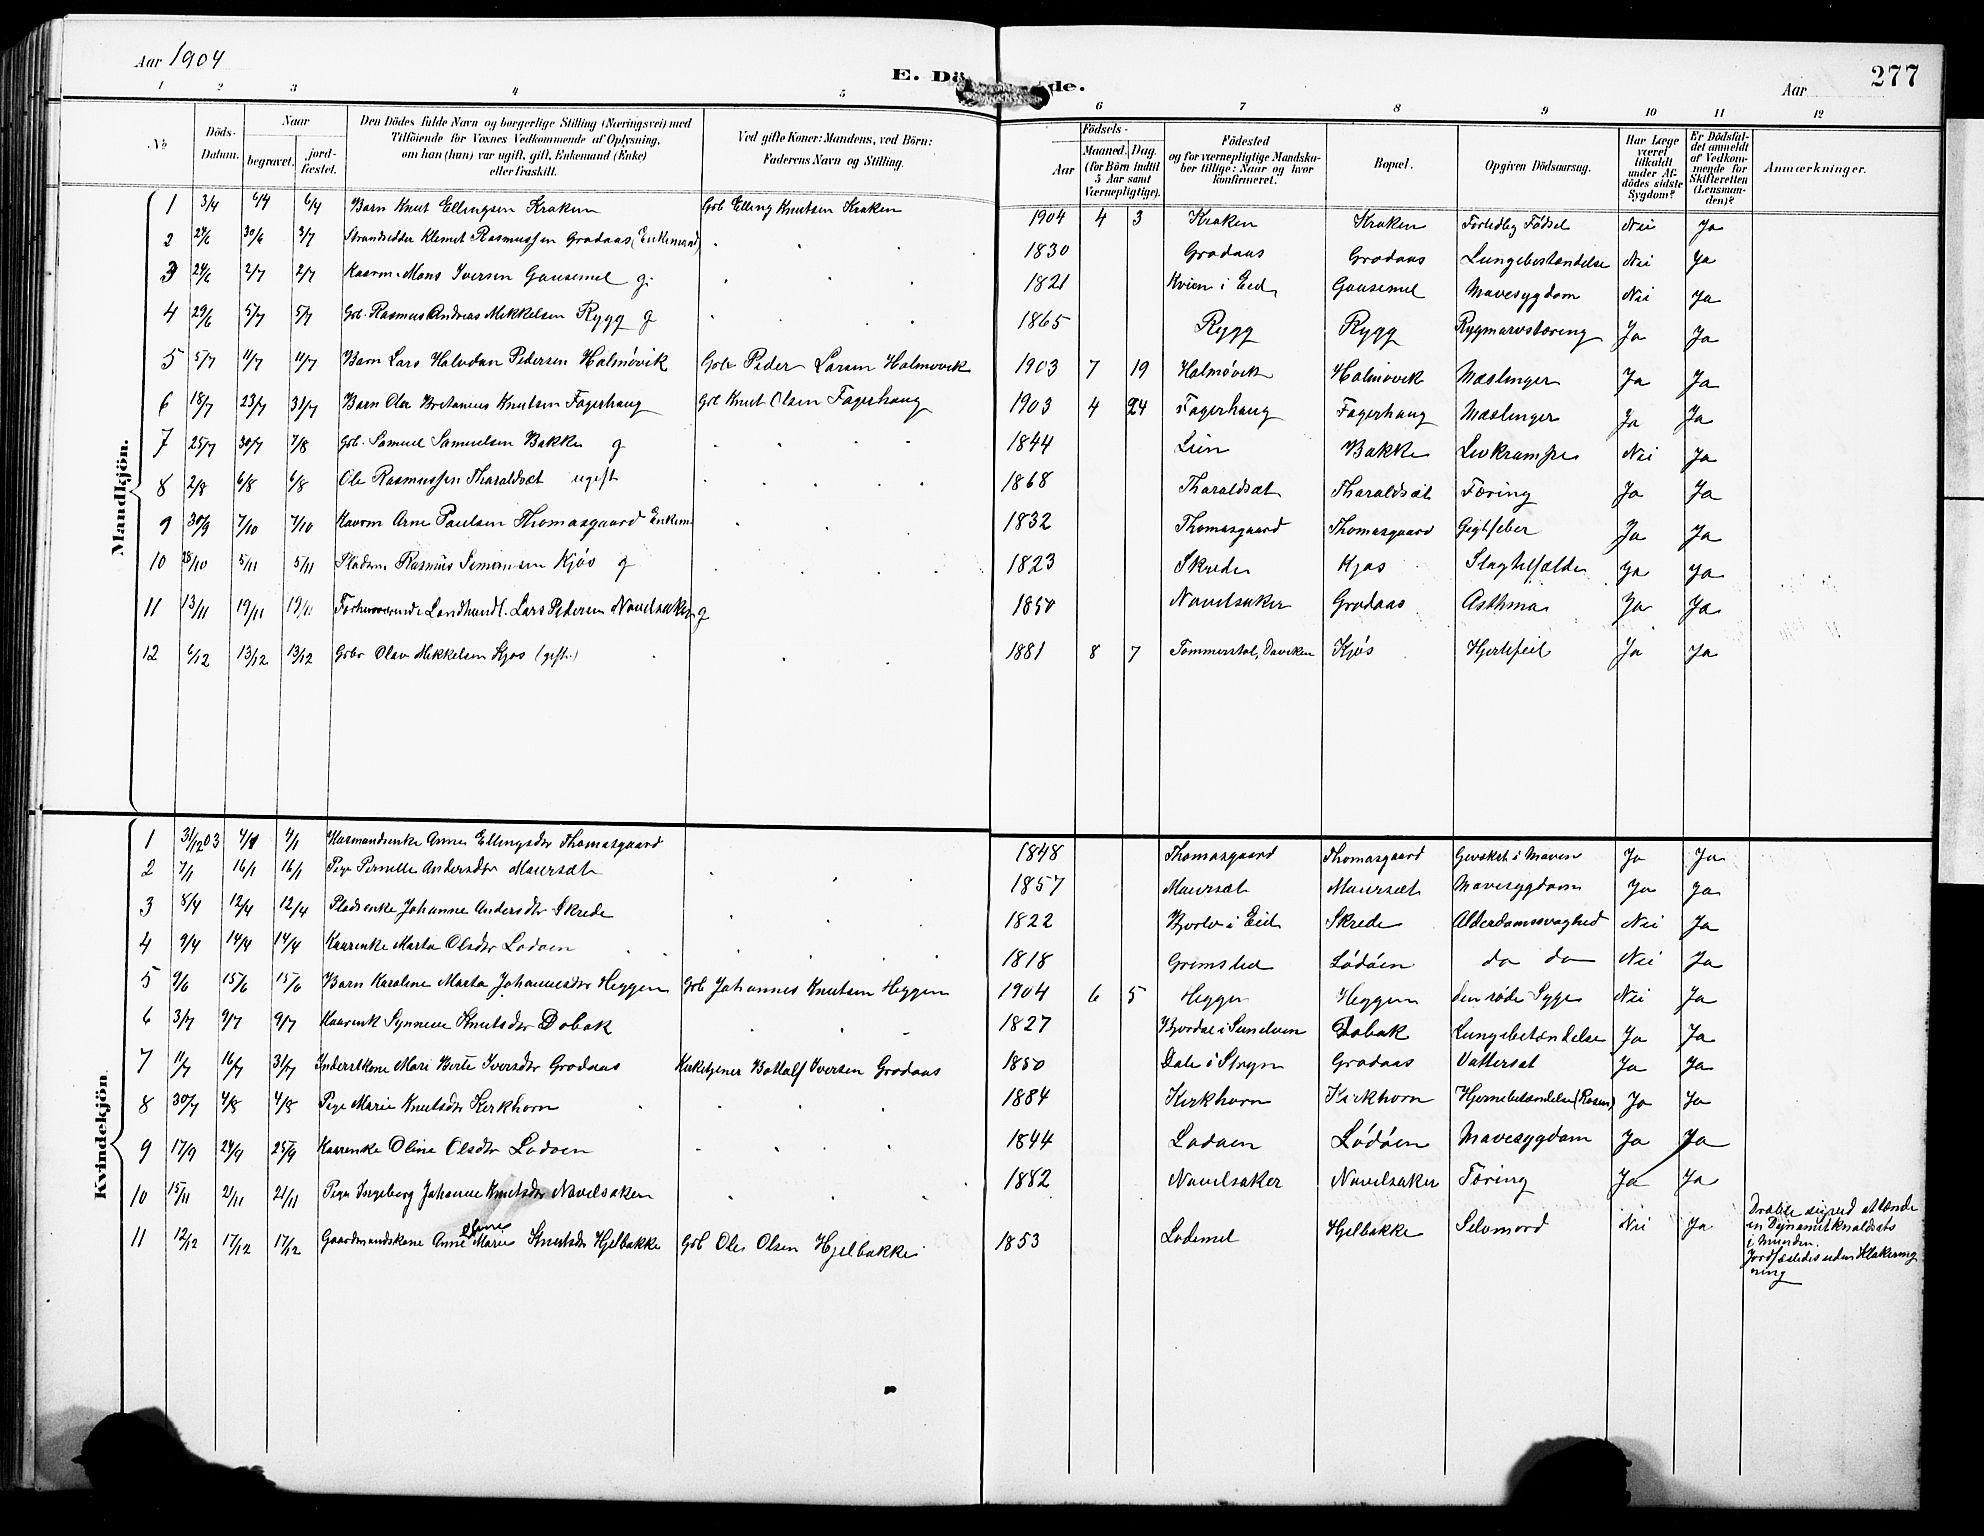 Aar 1904
E. Dö
de.
Aar
277
1 2 3 4 5 6 7 8 9 10 11 12
№
Döds-Datum.
Naar
begravet.
jord-fæstet.
Den Dödes fulde Navn og borgerlige Stilling (Næringsvei) med
Tilföiende for Voxnes Vedkommende af Oplysning,
om han (hun) var ugift, gift, Enkemand (Enke)
eller fraskilt.
Ved gifte Koner: Mandens, ved Börn:
Faderens Navn og Stilling.
Födsels-
Aar
Maaned. Dag.
(for Börn indtil
5 Aar samt
Værnepligtige).
Födested
og for værnepligtige Mandska-
ber tillige: Naar og hvor
konfirmeret.
Bopæl.
Opgiven Dödsaarsag.
Har Læge
været
tilkaldt
under Af-
dödes sidste
Sygdom?
Er Dödsfal-
det anmeldt
af Vedkom-
mende for
Skifteretten
(Lensman-
den)?
Anmærkninger.
Mandkjön.
1 3/4 6/4 6/4 Barn Knut Ellingsen Kraken Grb Elling Knutsen Kraken 1904 4 3 Kraken Kraken Fortidlig Fødsel Nei Ja
2 24/6 30/6 3/7 Strandsidder Klemet Rasmussen Grodaas (Enkemand) 1830 Grodaas Grodaas Lungebetændelse Nei Ja
3 24/6 2/7 2/7 Kaarm. Mons Iversen Gausemel g. 1821 Kvien i Eid Gausemel Mavesygdom Nei Ja
4 29/6 5/7 5/7 Grb. Rasmus Andreas Mikkelsen Rygg g 1865 Rygg Rygg Rygmarvstæring Ja Ja
5 5/7 11/7 11/7 Barn Lars Halvdan Pedersen Holmøvik Grb Peder Larsen Holmøvik 1903 7 19 Holmøvik Holmøvik Mæslinger Ja Ja
6 18/7 23/7 31/7 Barn Olai Bertinius Knutsen Fagerhaug Grb Knut Olsen Fagerhaug 1903 4 24 Fagerhaug Fagerhaug Mæslinger Ja Ja
7 25/7 30/7 7/8 Grb. Samuel Samuelsen Bakke g 1844 Lien Bakke Livkrampe Nei Ja
8 2/8 6/8 6/8 Ole Rasmussen Tharaldsæt ugift 1868 Tharaldsæt Tharaldsæt Tæring Ja Ja
9 30/9 7/10 7/10 Kaarm Arne Paulsen Thomasgaard Enkem. 1832 Thomasgaard Thomasgaard Gigtfeber Ja Ja
10 28/10 5/11 5/11 Pladsm Rasmus Simonsen Kjøs g 1823 Skrede Kjøs Slagtilfælde Ja Ja
11 13/11 19/11 19/11 Forhenværende Landhandl. Lars Pedersen Navelsaker g 1850 Navelsaker Grodaas Asthma Ja Ja
12 6/12 13/12 13/12 Grbr Olav Mikkelsen Kjøs (gift.) 1881 8 7 Tommerstøl, Daviken Kjøs Hjertefeil Ja Ja
Kvindekjön
1 31/12 03 4/1 4/1 Husmandsenke Anne Ellingsdtr Thomasgaard 1848 Thomasgaard Thomasgaard Gevækst i Maven Ja Ja
2 7/1 16/1 16/1 Pige Pernille Andersdtr Maursæt 1857 Maursæt Maursæt Mavesygdom Ja Ja
3 8/4 12/4 12/4 Pladsenke Johanne Andersdtr Skrede 1822 Bjorlo i Eid Skrede Alderdomssvaghed Nei Ja
4 9/4 14/4 14/4 Kaarenke Marta Olsdtr Lødøen 1818 Grimstad Lødøen do do Nei Ja
5 9/6 15/6 15/6 Barn Karoline Marta Johannesdtr Heggen Grb Johannes Knutsen Heggen 1904 6 5 Heggen Heggen den røde Syge Nei Ja
6 3/7 9/7 9/7 Kaarenk Synneve Knutsdtr Dobak 1827 Bjordal i Sunelven Dobak Lungebetændelse Ja Ja
7 11/7 16/7 31/7 Inderstkone Mari Berte Iversdtr Grodaas Kirketjener Bottolf Iversen Grodaas 1850 Dale i Stryn Grodaas Vattersot Ja Ja
8 30/7 4/8 4/8 Pige Marie Knutsdtr Kirkhorn 1884 Kirkhorn Kirkhorn Hjernebetændelse (Rosen) Ja Ja
9 17/9 24/9 25/9 Kaarenke Oline Olsdtr Lødøen 1844 Lødøen Lødøen Mavesygdom Ja Ja
10 15/11 21/11 21/11 Pige Ingeborg Johanne Knutsdtr Navelsaker 1882 Navelsaker Navelsaker Tæring Ja Ja
11 12/12 17/12 17/12 Gaardmandskone Anne Oline Marie Knutsdtr Hjelbakke Grb Ole Olsen Hjelbakke 1853 Lødemel Hjelbakke Selvmord Nei Ja Dræbte sig ved at tænde
en Dynamitknaldhats
i Munden.
Jordfæstedes uden Klokering
ning